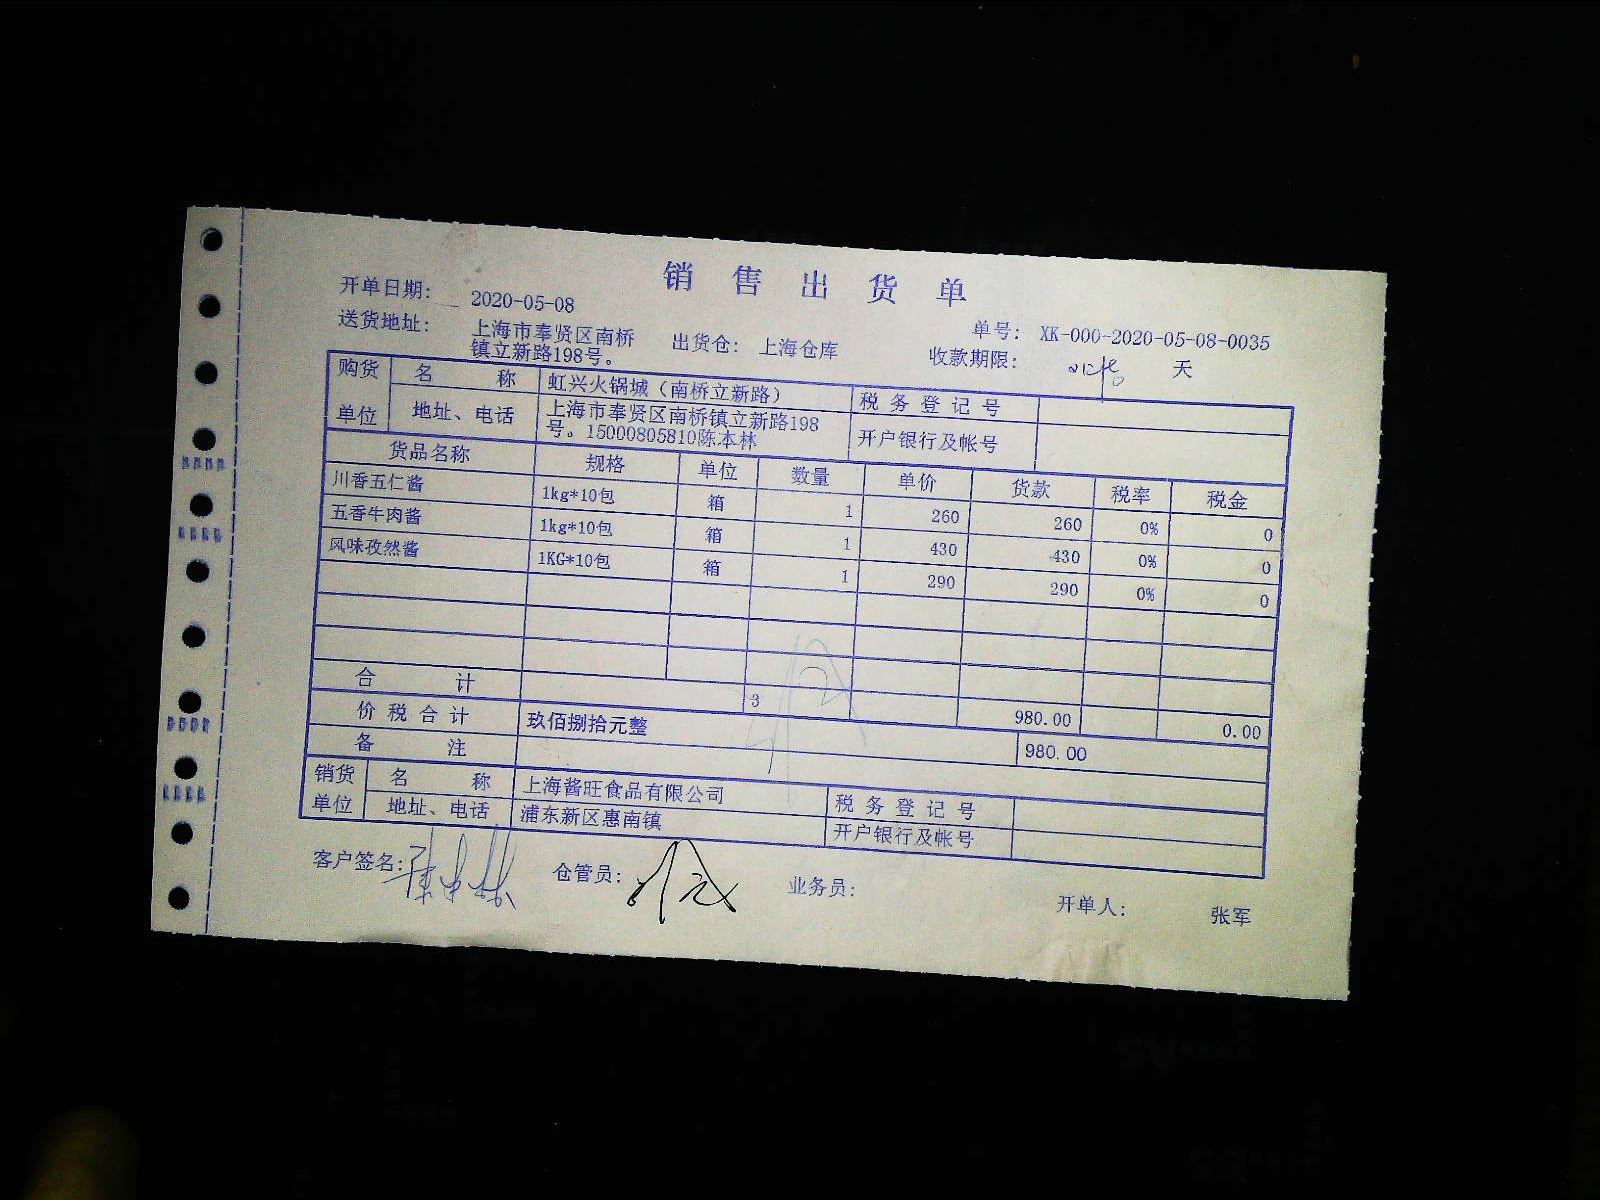 销 售 出 货 单
开单日期： 2020-05-08
单号： XK-000-2020-05-08-0035
送货地址： 上海市奉贤区南桥镇立新路198号。 出货仓： 上海仓库 收款期限： 天
购货单位 名 称 虹兴火锅城（南桥立新路） 税 务 登 记 号
地址、电话 上海市奉贤区南桥镇立新路198号。15000805810陈本林 开户银行及帐号
货品名称 规格 单位 数量 单价 货款 税率 税金
川香五仁酱 1kg*10包 箱 1 260 260 0% 0
五香牛肉酱 1kg*10包 箱 1 430 430 0% 0
风味孜然酱 1KG*10包 箱 1 290 290 0% 0
合 计 3 980.00 0.00
价 税 合 计 玖佰捌拾元整 980.00
备 注
销货单位 名 称 上海酱旺食品有限公司 税 务 登 记 号
地址、电话 浦东新区惠南镇 开户银行及帐号
客户签名： 仓管员： 业务员： 开单人： 张军